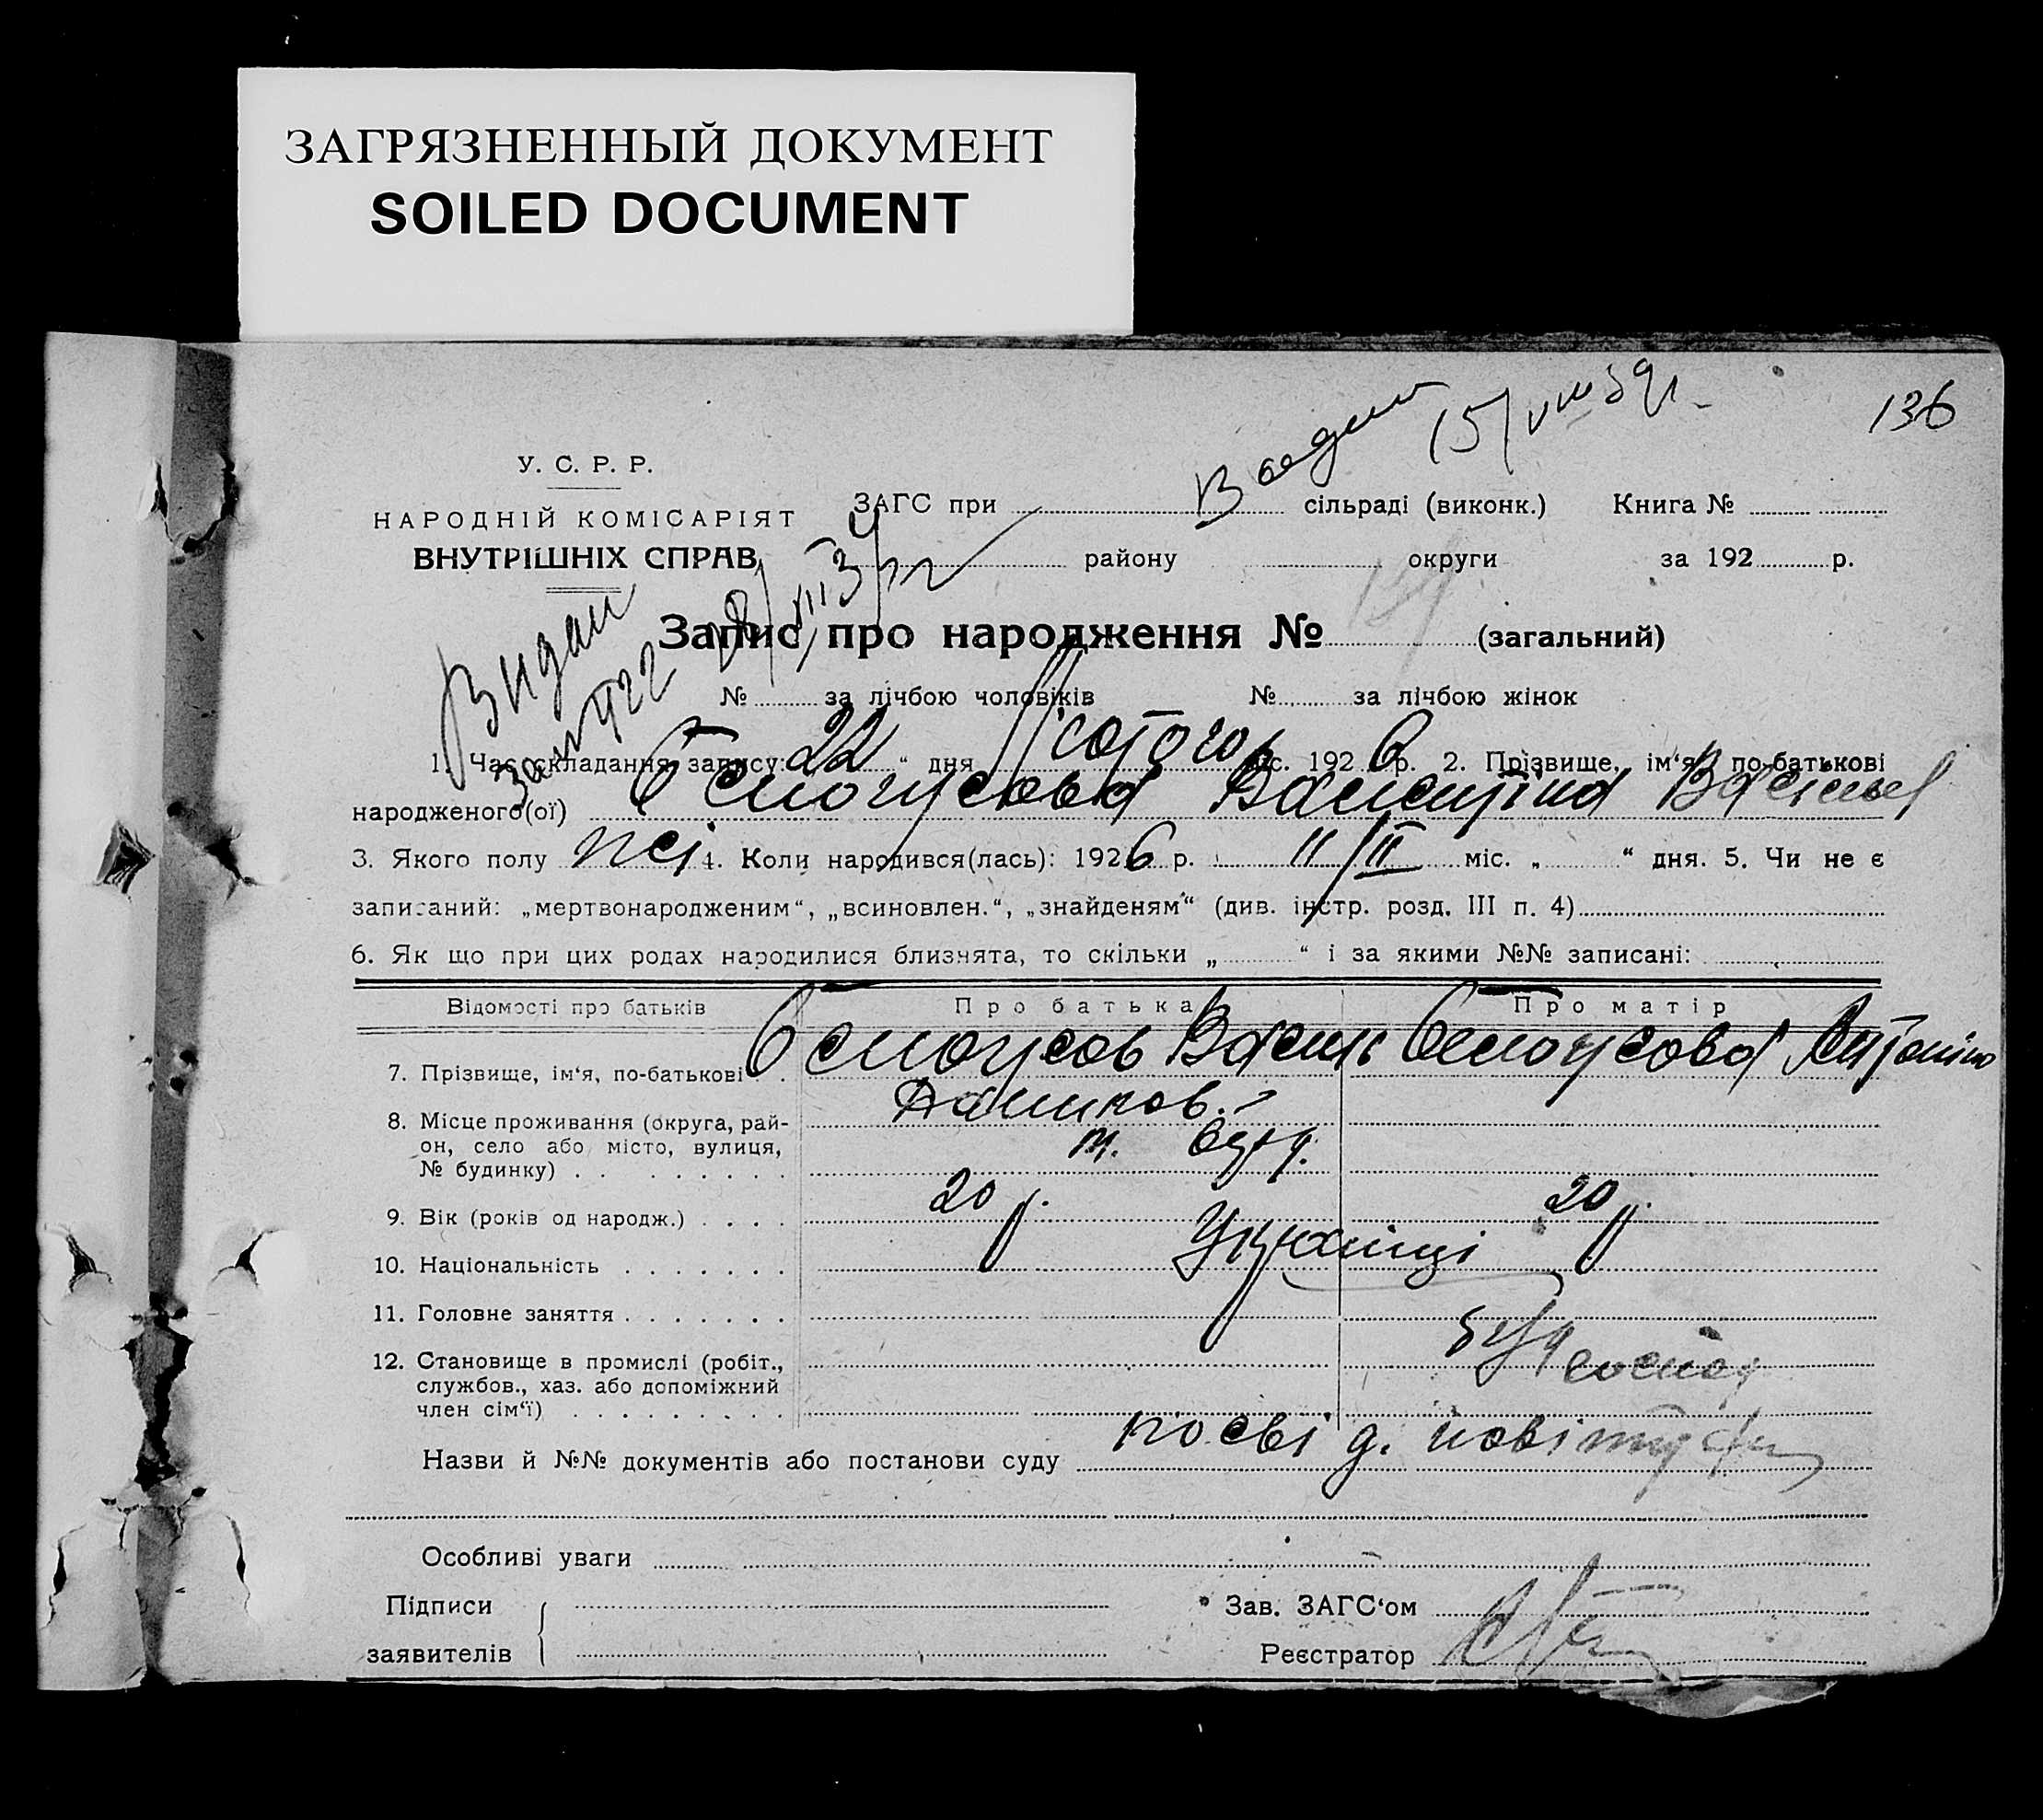 ЗАГРЯЗНЕННЫЙ ДОКУМЕНТ
SOILED DOCUMENT
136
У. С. Р. Р.
НАРОДНІЙ КОМІСАРІЯТ
ВНУТРІШНІХ СПРАВ
ЗАГС при сільраді (виконк.) Книга №
району округи за 192 р.
Видан
Запис про народження № (загальний)
№ за лічбою чоловіків № за лічбою жінок
1. Час складання запису: 22 “ дня Лютого міс. 1926 р. 2. Прізвище, ім‘я, по-батькові
народженого(ої) Білоусова Валентіна Василь
3. Якого полу жі 4. Коли народився(лась): 1926 р. 11/II міс. „ “ дня. 5. Чи не є
записаний: „мертвонародженим“, „всиновлен.“, „знайденям“ (див. інстр. розд. III п. 4)
6. Як що при цих родах народилися близнята, то скільки „ “ і за якими №№ записані:
Відомості про батьків Про батька Про матір
7. Прізвище, ім‘я, по-батькові Білоусов Василь Білоусова Антоніна
8. Місце проживання (округа, рай-
он, село або місто, вулиця,
№ будинку)
9. Вік (років од народж.) 20 р. 20 р.
10. Національність Українці
11. Головне заняття
12. Становище в промислі (робіт.,
службов., хаз. або допоміжний
член сім‘ї)
Назви й №№ документів або постанови суду посвід.
Особливі уваги
Підписи
заявителів
Зав. ЗАГС‘ом
Реєстратор